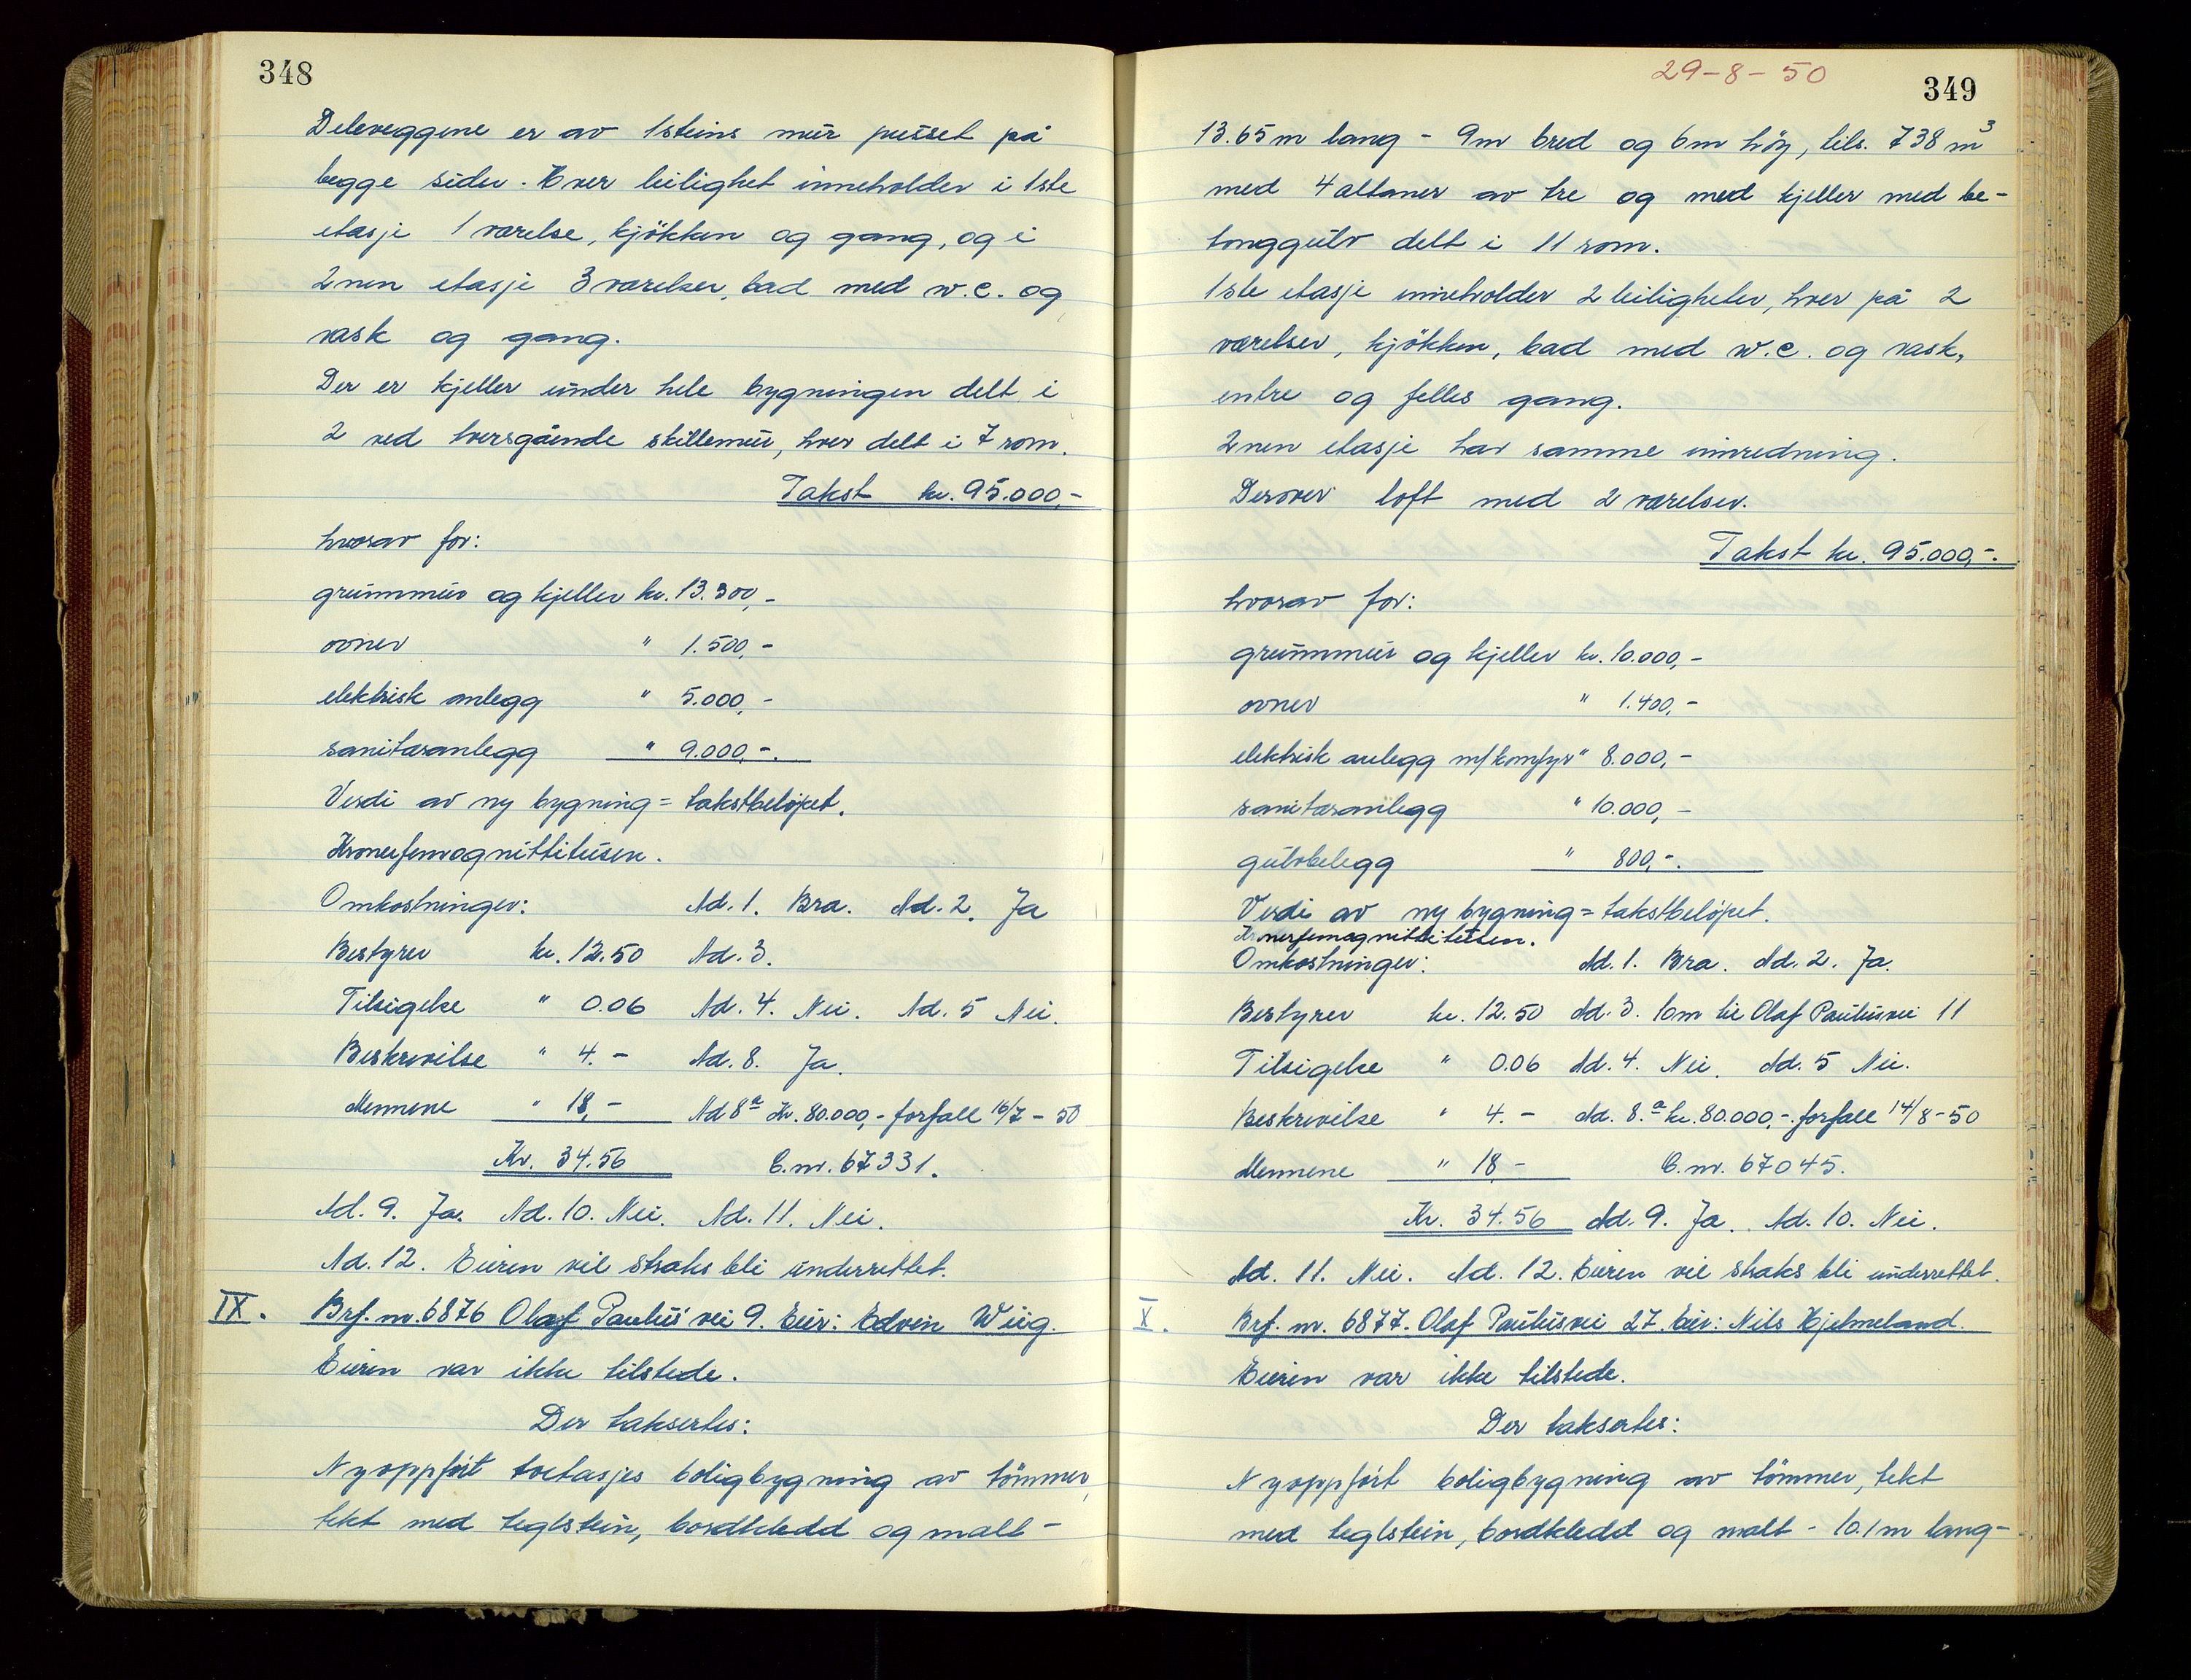 348
Deleveggene er av 1steins mur pusset på
begge sider. Hver leilighet inneholder i 1ste
etasje 1 værelse, kjökken og gang, og i
2nen etasje 3 værelser, bad med w.c. og
vask og gang.
Der er kjeller under hele bygningen delt i
2 ved tversgående skillemur, hver delt i 7 rom.
Takst kr. 95.000,-
hvorav for:
grunnmur og kjeller kr. 13.300,-
ovner " 1.500,-
elektrisk anlegg " 5.000,-
sanitæranlegg " 9.000,-.
Verdi av ny bygning = takstbelöpet.
Kronerfemognittitusen.
Omkostninger: Ad. 1. Bra. Ad. 2. Ja
Bestyrer kr. 12.50 Ad. 3.
Tilsigelse " 0.06 Ad. 4. Nei. Ad. 5 Nei.
Beskrivelse " 4.- Ad. 8. Ja.
Mennene " 18,- Ad 8a Kr. 80.000,- forfall 16/7 - 50
Kr. 34.56 B.nr. 67331.
Ad. 9. Ja. Ad. 10. Nei. Ad. 11. Nei.
Ad. 12. Eieren vil straks bli underrettet.
IX. Brf. nr. 6876 Olaf Paulus' vei 9. Eier: Edvin Wiig.
Eieren var ikke tilstede.
Der taksertes:
Nyoppfört toetasjes boligbygning av tömmer,
tekt med teglstein, bordkledd og malt -
29-8-50
349
13.65 m lang - 9 m bred og 6 m höy, tils. 738 m3
med 4 altaner av tre og med kjeller med be-
tonggulv delt i 11 rom.
1ste etasje inneholder 2 leiligheter, hver på 2
værelser, kjökken, bad med w.c. og vask,
entre og felles gang.
2nen etasje har samme innredning.
Derover loft med 2 værelser.
Takst kr. 95.000,-.
hvorav for:
grunnmur og kjeller kr. 10.000,-
ovner " 1.400,-
elektrisk anlegg m/komfyr " 8.000,-
sanitæranlegg " 10.000,-
gulvbelegg " 800,-.
Verdi av ny bygning = takstbelöpet.
Kronerfemognittitusen.
Omkostninger: Ad. 1. Bra. Ad. 2. Ja.
Bestyrer kr. 12.50 Ad. 3. 10m til Olaf Paulusvei 11
Tilsigelse " 0.06 Ad. 4. Nei. Ad. 5 Nei.
Beskrivelse " 4.- Ad. 8.a kr. 80.000,-. forfall 14/8-50
Mennene " 18,- B.nr. 67045.
Kr. 34.56 Ad. 9. Ja. Ad. 10. Nei.
Ad. 11. Nei. Ad. 12. Eieren vil straks bli underrettet.
X. Brf. nr. 6877. Olaf Paulusvei 27. Eier: Nils Hjelmeland.
Eieren var ikke tilstede.
Der taksertes:
Nyoppfört boligbygning av tömmer, tekt
med teglstein, bordkledd og malt - 10.1 m lang-